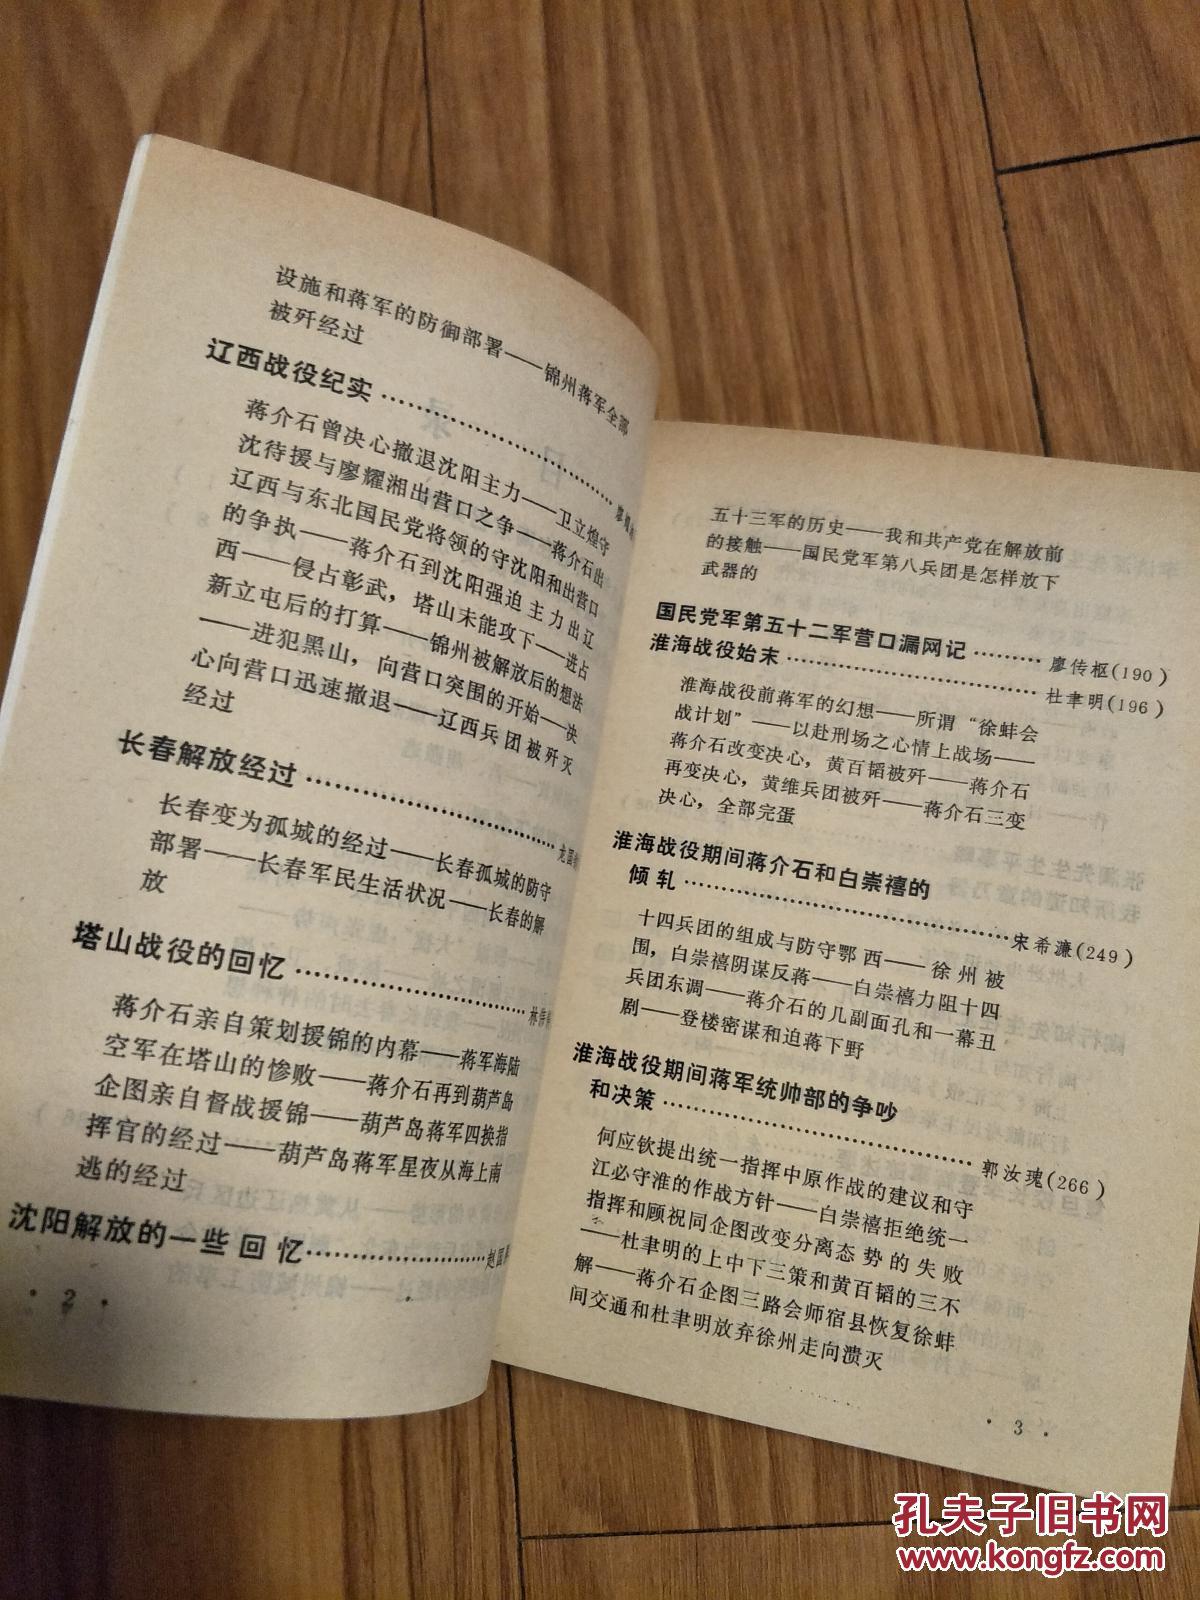 设施和蒋军的防御部署——锦州蒋军全部
被歼经过
辽西战役纪实……………………
蒋介石曾决心撤退沈阳主力——卫立煌守
沈待援与廖耀湘出营口之争——蒋介石出
辽西与东北国民党将领的守沈阳和出营口
的争执——蒋介石到沈阳强迫主力出辽
西——侵占彰武，塔山未能攻下——进占
新立屯后的打算——锦州被解放后的想法
——进犯黑山，向营口突围的开始——决
心向营口迅速撤退——辽西兵团被歼灭
经过
长春解放经过……………………
长春变为孤城的经过——长春孤城的防守
部署——长春军民生活状况——长春的解
放
塔山战役的回忆……………………
蒋介石亲自策划援锦的内幕——蒋军海陆
空军在塔山的惨败——蒋介石再到葫芦岛
企图亲自督战援锦——葫芦岛蒋军四换指
挥官的经过——葫芦岛蒋军星夜从海上南
逃的经过
沈阳解放的一些回忆………………赵国
·2·
五十三军的历史——我和共产党在解放前
的接触——国民党军第八兵团是怎样放下
武器的
国民党军第五十二军营口漏网记………廖传枢(190)
淮海战役始末……………………………杜聿明(196)
淮海战役前蒋军的幻想——所谓“徐蚌会
战计划”——以赴刑场之心情上战场——
蒋介石改变决心，黄百韬被歼——蒋介石
再变决心，黄维兵团被歼——蒋介石三变
决心，全部完蛋
淮海战役期间蒋介石和白崇禧的
倾轧……………………………………宋希濂(249)
十四兵团的组成与防守鄂西——徐州被
围，白崇禧阴谋反蒋——白崇禧力阻十四
兵团东调——蒋介石的几副面孔和一幕丑
剧——登楼密谋和迫蒋下野
淮海战役期间蒋军统帅部的争吵
和决策…………………………………郭汝瑰(266)
何应钦提出统一指挥中原作战的建议和守
江必守淮的作战方针——白崇禧拒绝统一
指挥和顾祝同企图改变分离态势的失败
——杜聿明的上中下三策和黄百韬的三不
解——蒋介石企图三路会师宿县恢复徐蚌
间交通和杜聿明放弃徐州走向溃灭
·3·
孔夫子旧书网
www.kongfz.com